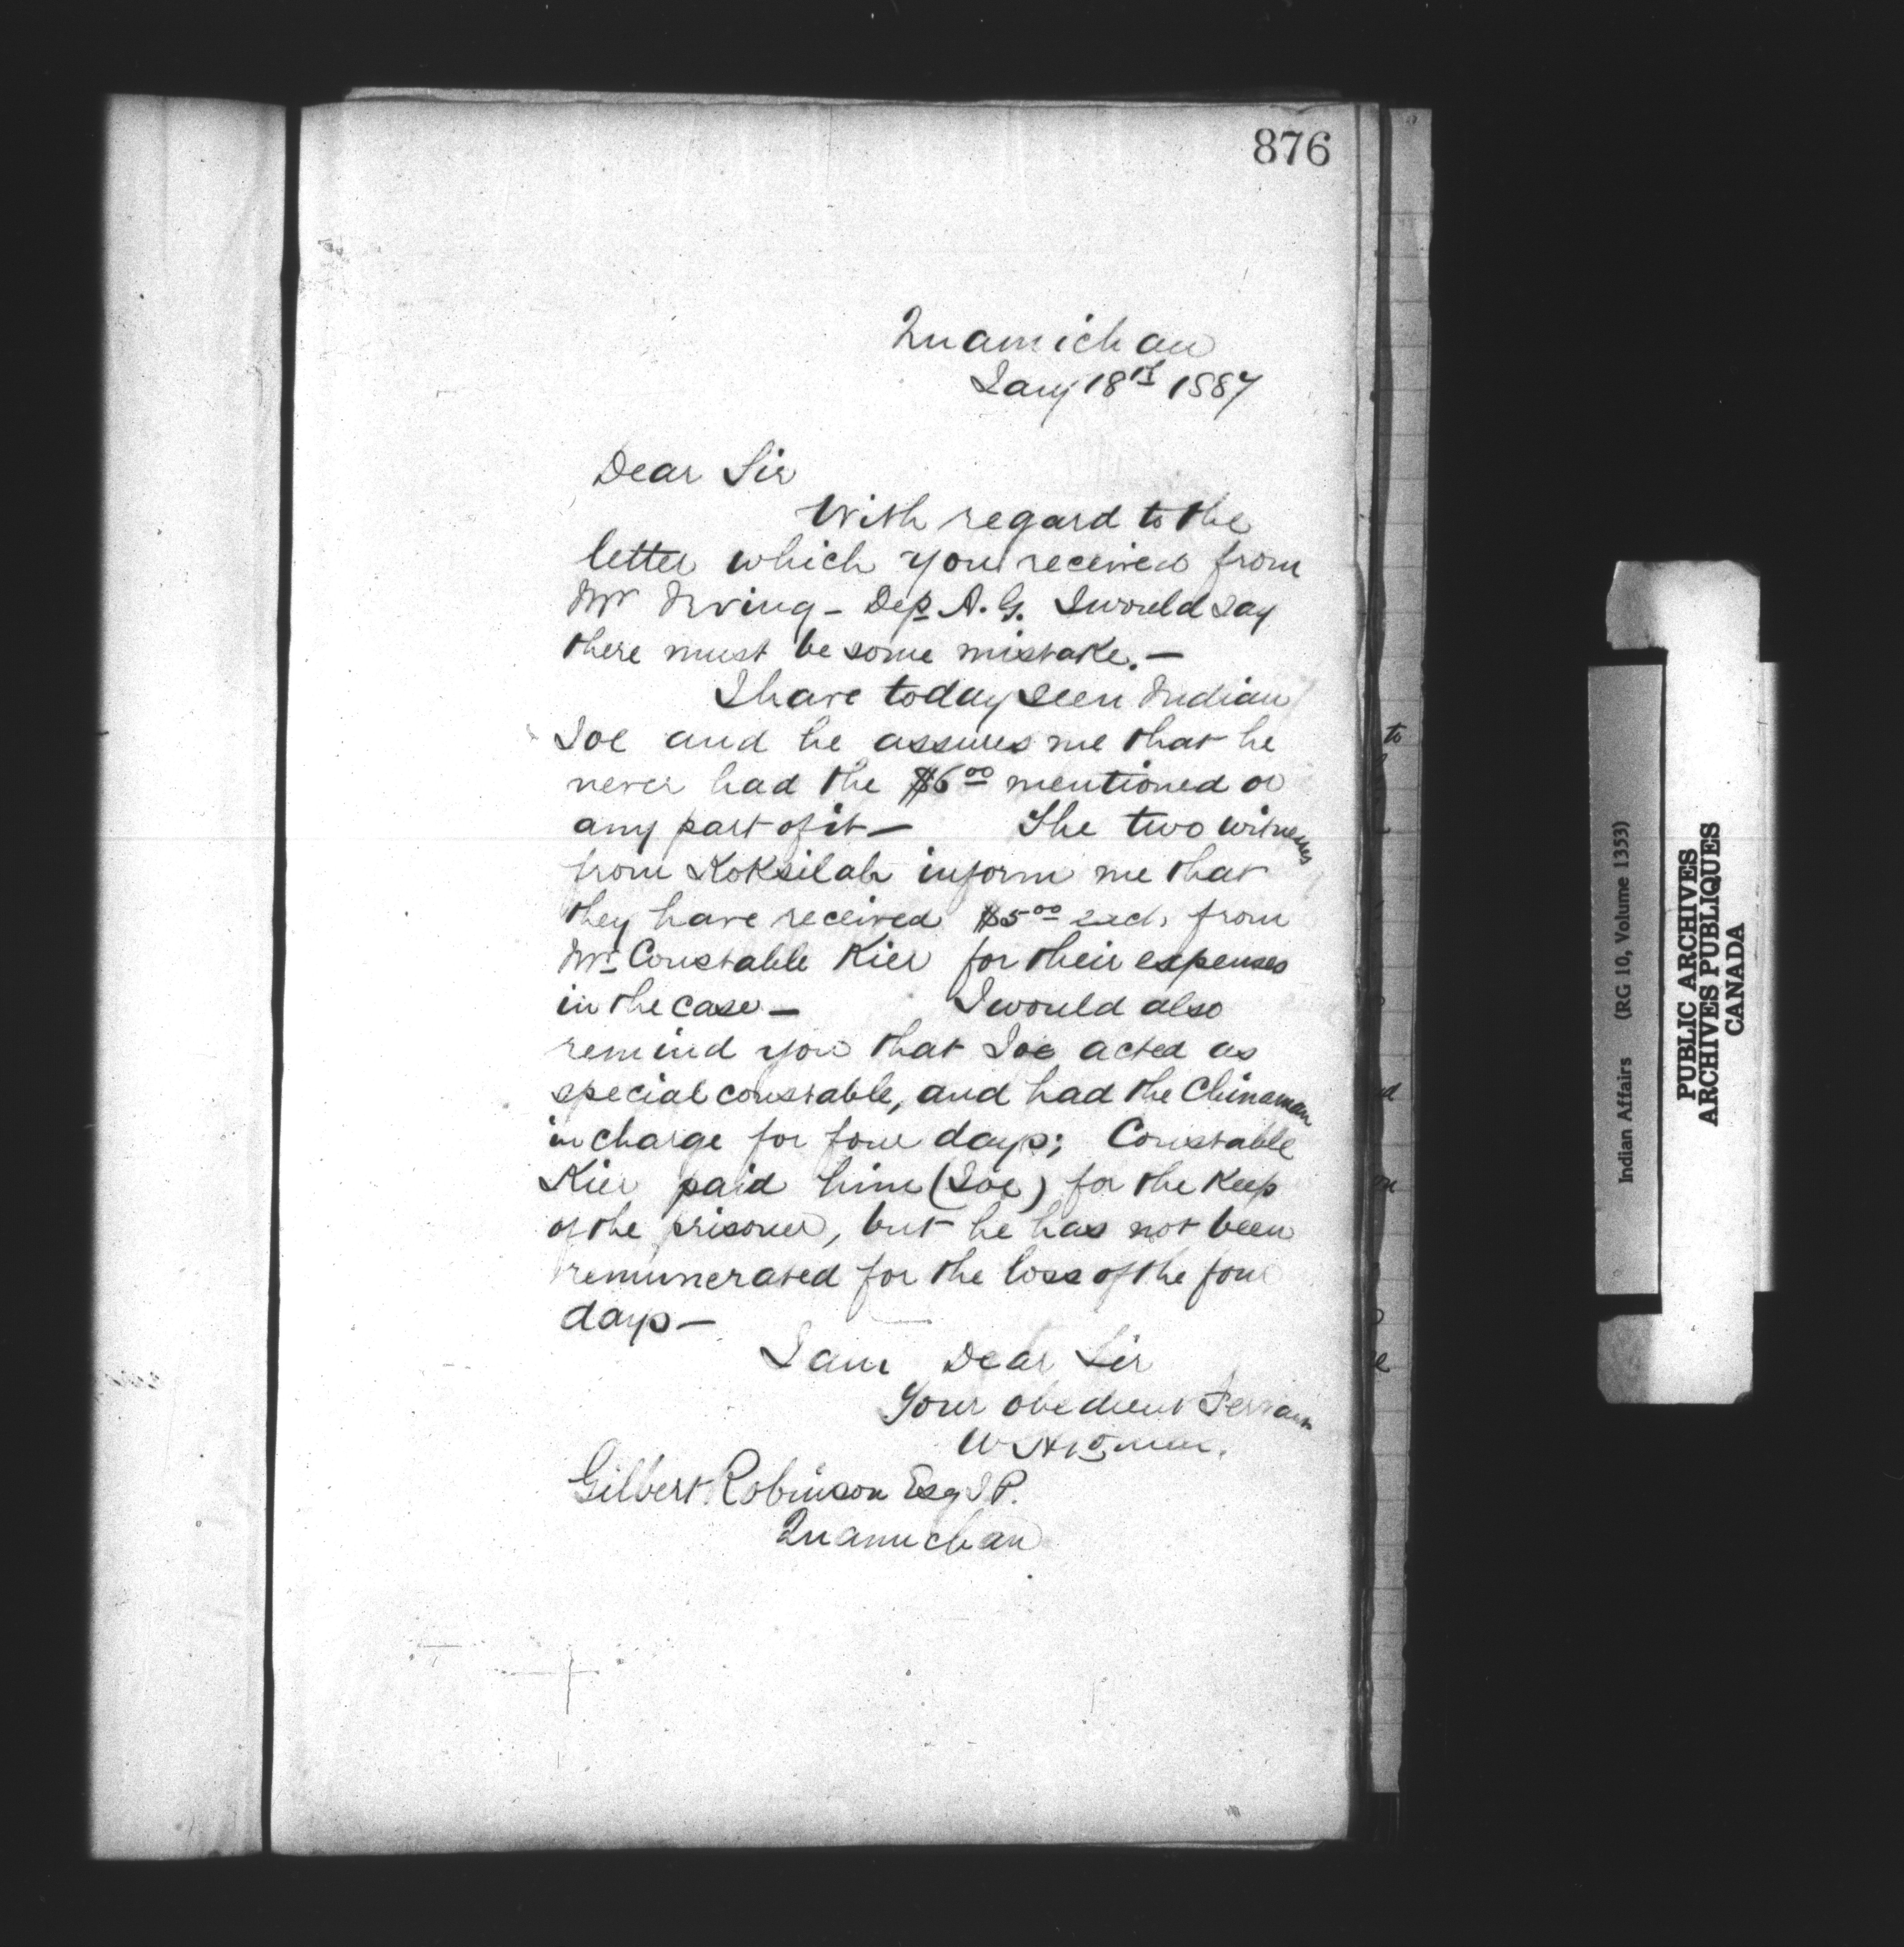 876
Quamichan
Jany 18th 1887
Dear Sir
With regard to the
letter which you received from
Mr Irving - Dep. A. G. I would say
there must be some mistake. -
I have today seen Indian
Joe and he assures me that he
never had the $6 00 mentioned or
any part of it - The two witnesses
from Koksilah inform me that
they have received $5 00 each from
Mr. Constable Kier for their expenses
in the case - I would also
remind you that Joe acted as
special constable, and had the Chinaman
in charge for four days; Constable
Kier paid him (Joe) for the keep
of the prisoner, but he has not been
remunerated for the loss of the four
days -
I am Dear Sir
Your obedient Servant
W
Gilbert Robinson Esq J P.
Quamichan
Indian Affairs (RG 10, Volume 1353)
PUBLIC ARCHIVES
ARCHIVES PUBLIQUES
CANADA